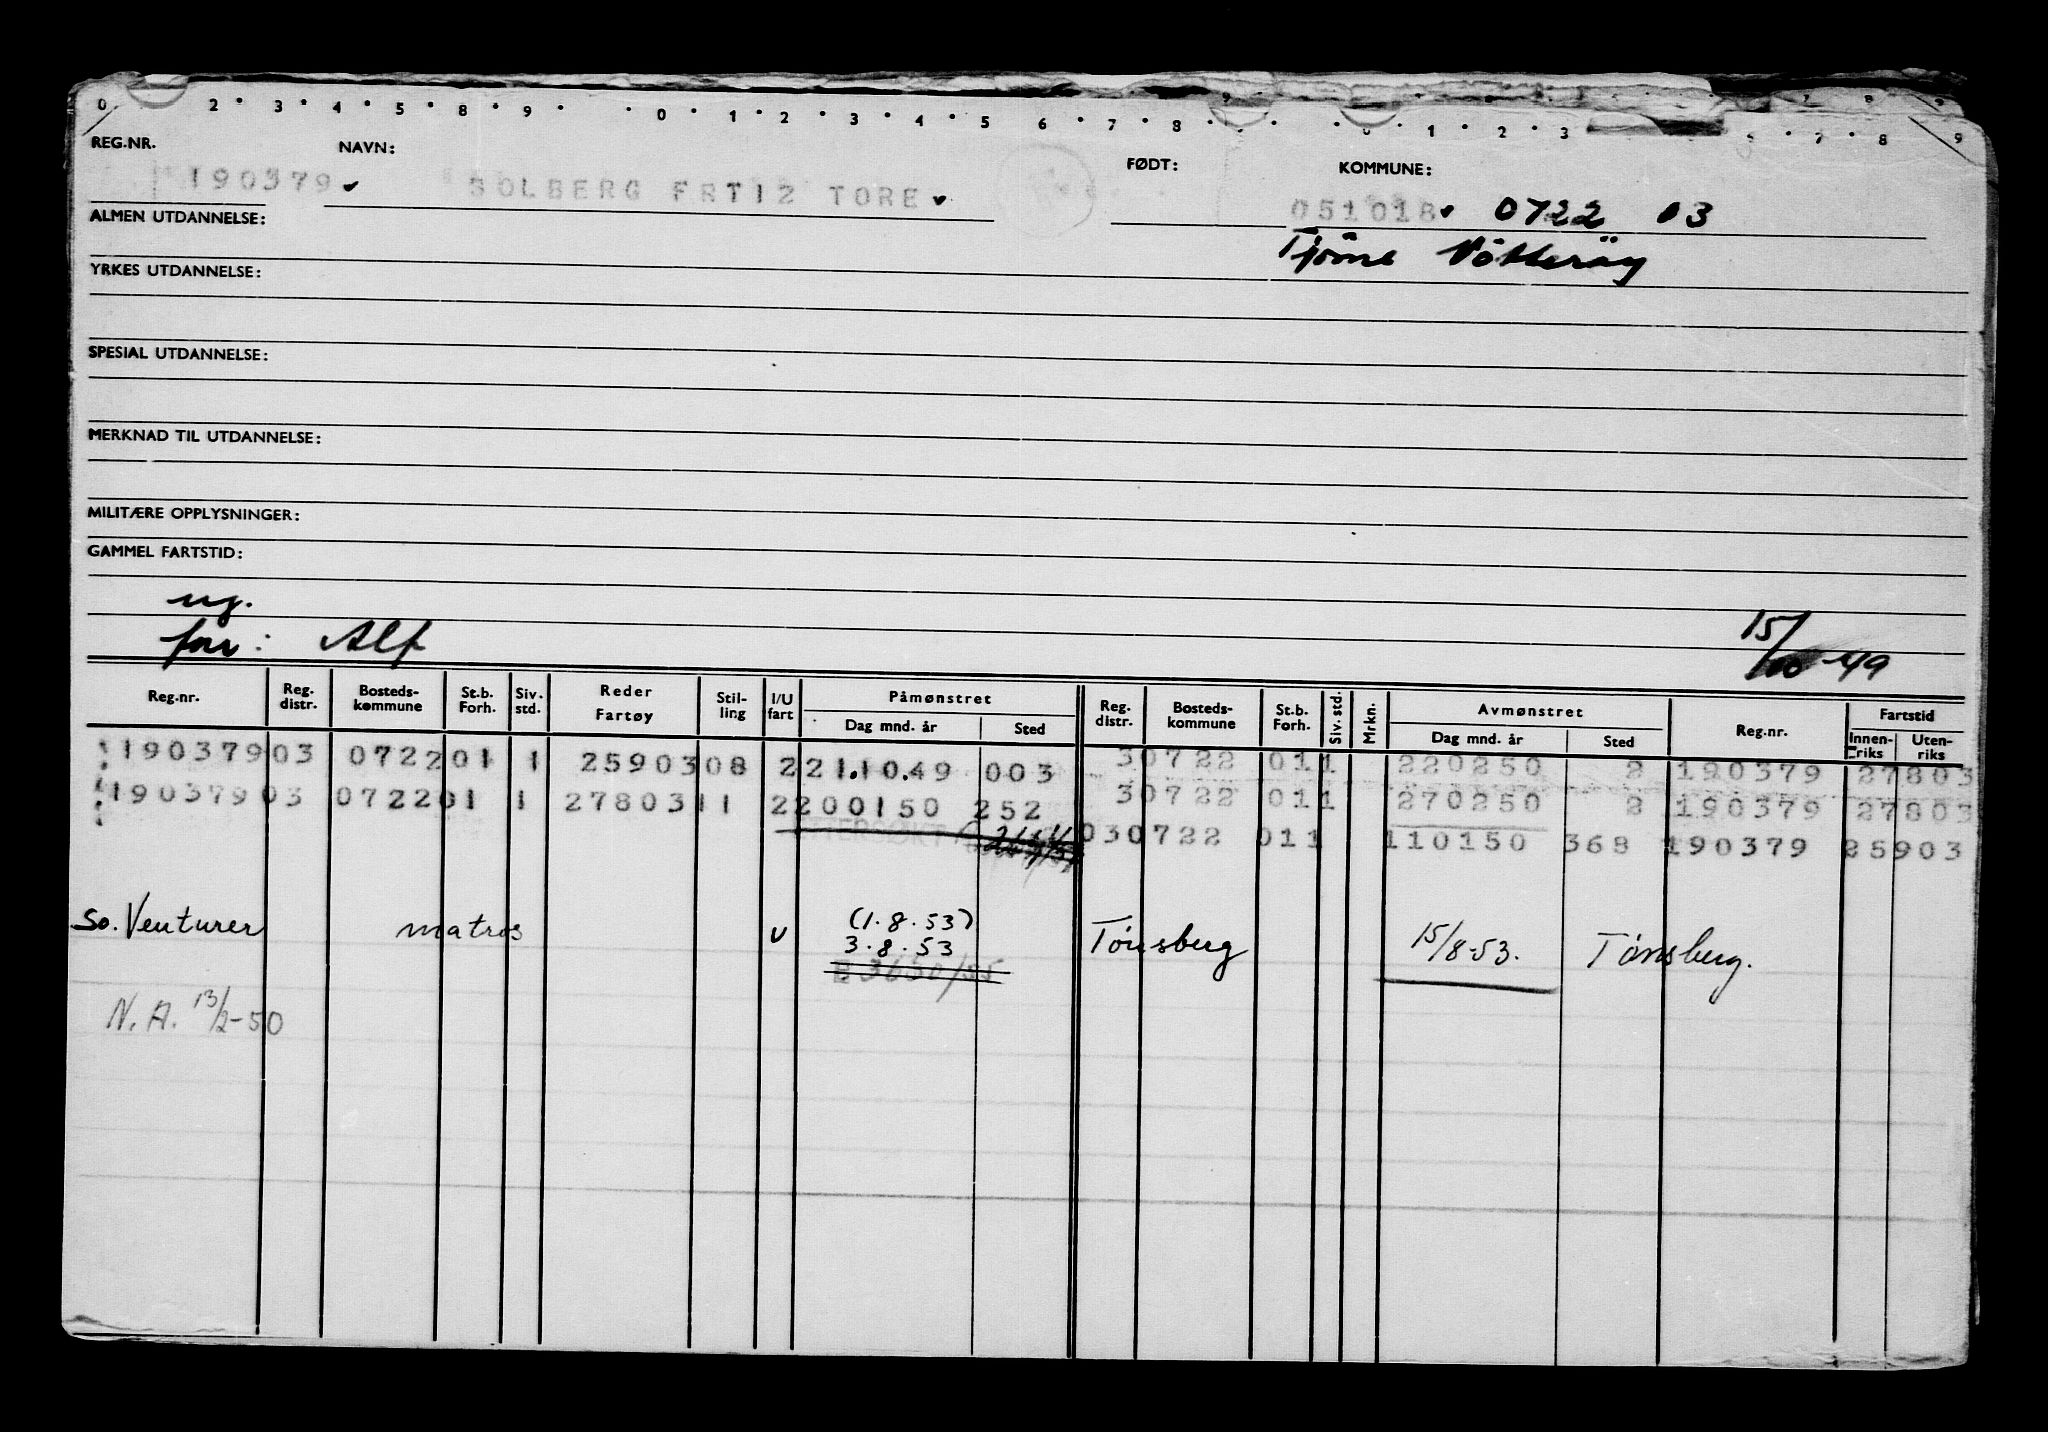 0 2 3 4 5 8 9 0 1 2 3 4 5 6 7 8 1 2 3 6 7 8 9
REG.NR. NAVN: FØDT: KOMMUNE:
190379 SOLBERG FRTI2 TORE 051018 0722 03
ALMEN UTDANNELSE: Tjöme
YRKES UTDANNELSE:
SPESIAL UTDANNELSE:
MERKNAD TIL UTDANNELSE:
MILITÆRE OPPLYSNINGER:
GAMMEL FARTSTID:
ug.
far: Alf 15/10-49
Reg.nr. Reg. distr. Bosteds-kommune St.b. Forh. Siv. std. Reder Fartøy Stil-ling I/U fart Påmønstret Dag mnd. år Sted Reg. distr. Bosteds-kommune St.b. Forh. Siv. std. Mrkn. Avmønstret Dag mnd. år Sted Reg.nr. Fartstid Innen-riks Uten-riks
190379 03 0722 01 1 25903 08 2 21.10.49 003 30722 011 220250 2 190379 27803
190379 03 0722 01 1 27803 11 2 200150 252 30722 011 270250 2 190379 27803
030722 011 110150 368 190379 25903
So. Venturer matros U (1.8.53) Tönsberg 15/8-53. Tönsberg.
3.8.53
E 3650/55
N.A. 13/2-50